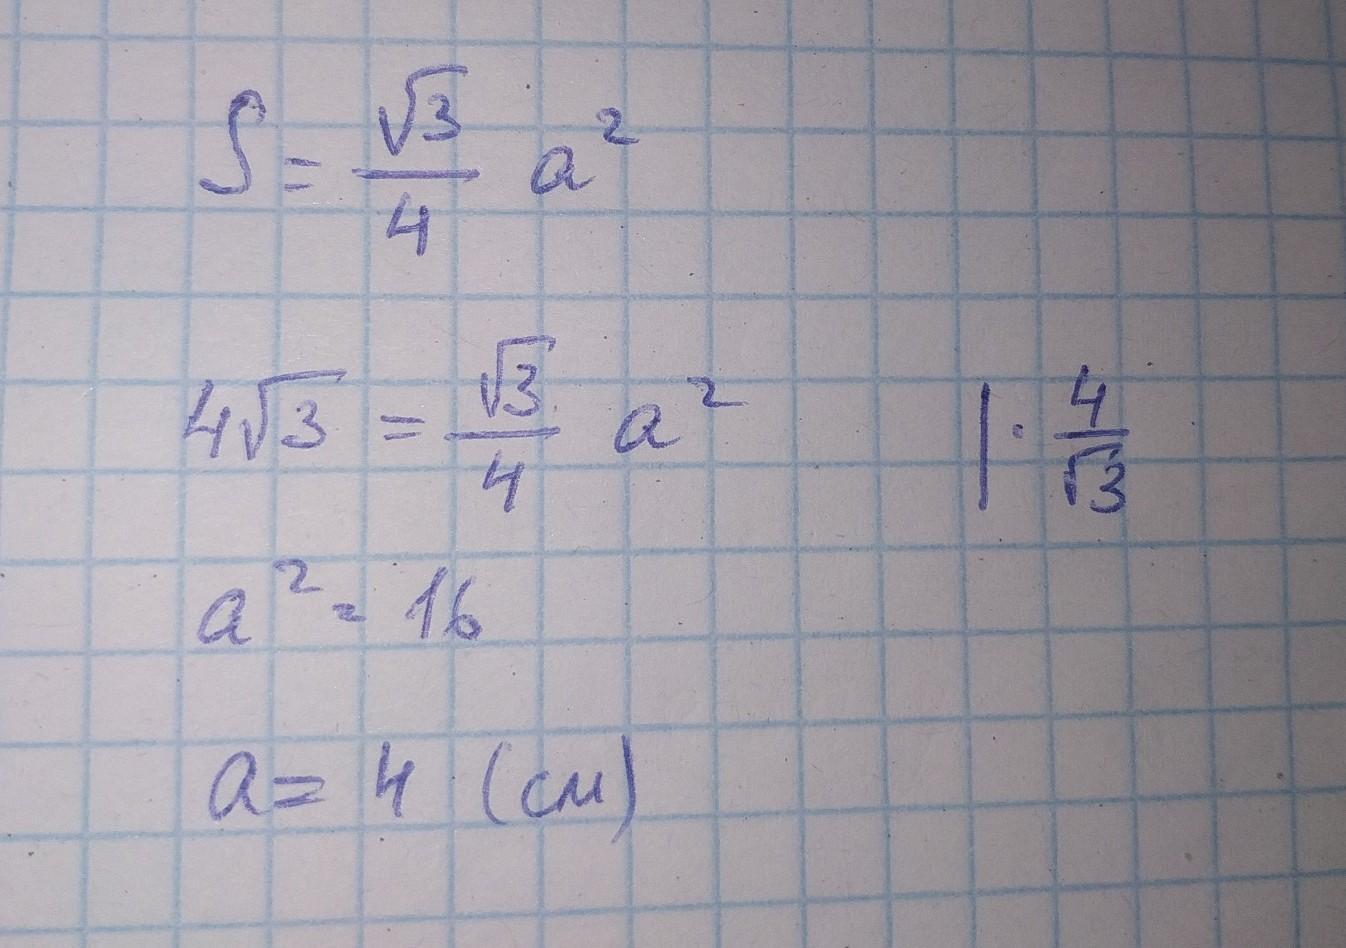 S = √3/4 a²
4√3 = √3/4 a² | · 4/√3
a² = 16
a = 4 (см)